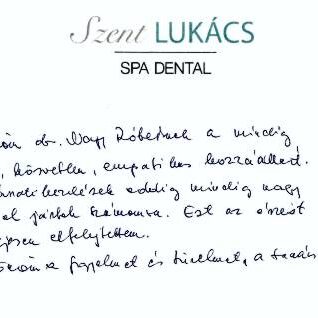 Szent LUKÁCS
SPA DENTAL
dr. Nagy Róbertnek a mindig
, közvetlen, empatikus hozzáállást.
kezelések eddig mindig nagy
jártak számomra. Ezt az érzést
elfelejtettem.
figyelmet és türelmet, a